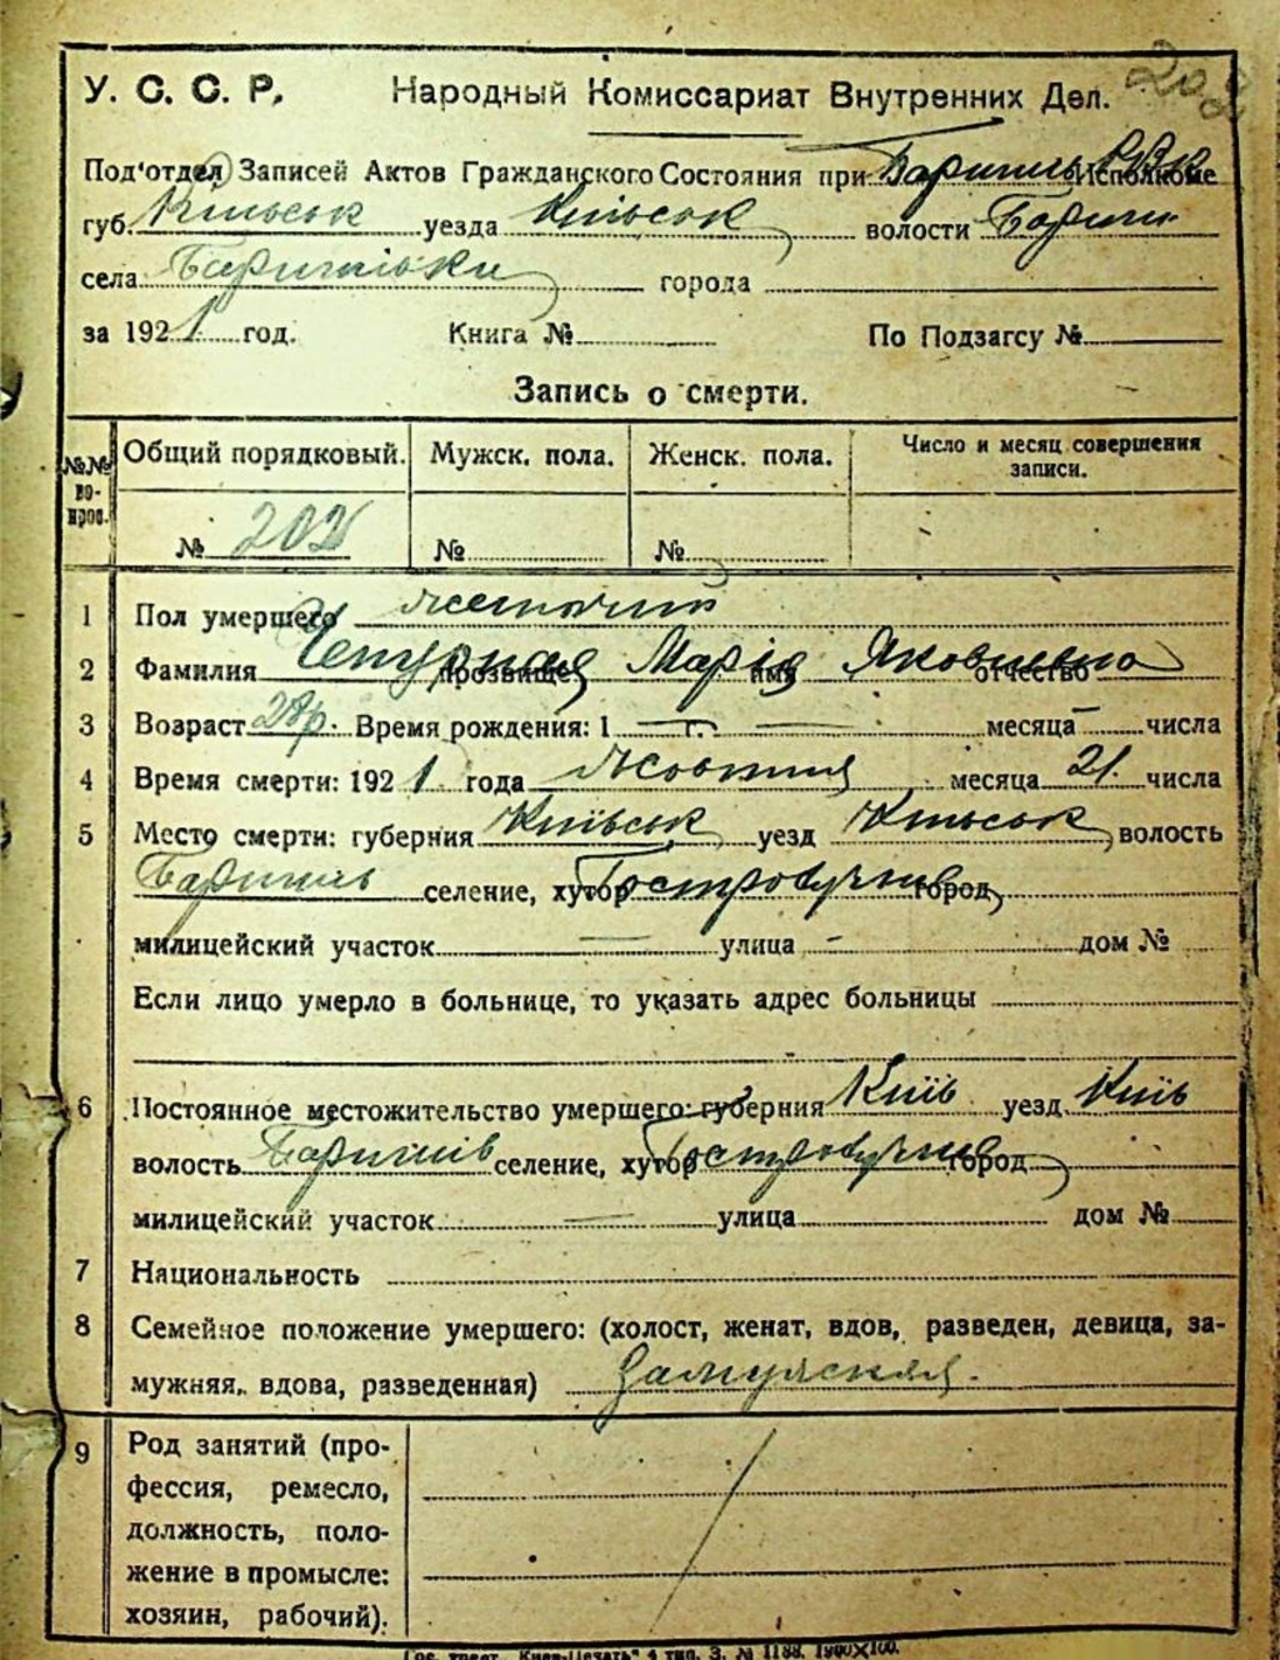 У. С. С. Р. Народный Комиссариат Внутренних Дел.
Под'отдел Записей Актов Гражданского Состояния при Баришів. РВК Исполкоме
губ. Київськ уезда Київськ волости Бариш
села Баришівки города
за 1921 год. Книга № По Подзагсу №
Запись о смерти.
№№ вопрос. Общий порядковый. Мужск. пола. Женск. пола. Число и месяц совершения записи.
№ 202 № №
1 Пол умершего
2 Фамилия прозвище Марія имя Яковлевна отчество
3 Возраст 28 р. Время рождения: 1 — г. — месяца — числа
4 Время смерти: 1921 года Жовтня месяца 21. числа
5 Место смерти: губерния Київськ уезд Київськ волость
Баришів селение, хутор Гостролучче город
милицейский участок — улица — дом №
Если лицо умерло в больнице, то указать адрес больницы
6 Постоянное местожительство умершего: губерния Київ уезд Київ
волость Баришів селение, хутор Гостролучче город
милицейский участок — улица дом №
7 Национальность
8 Семейное положение умершего: (холост, женат, вдов, разведен, девица, за-
мужняя, вдова, разведенная) Замужняя.
9 Род занятий (про-
фессия, ремесло,
должность, поло-
жение в промысле:
хозяин, рабочий).
Гос. трест „Киев-Печать" 4 тип. З. № 1188. 1900×100.